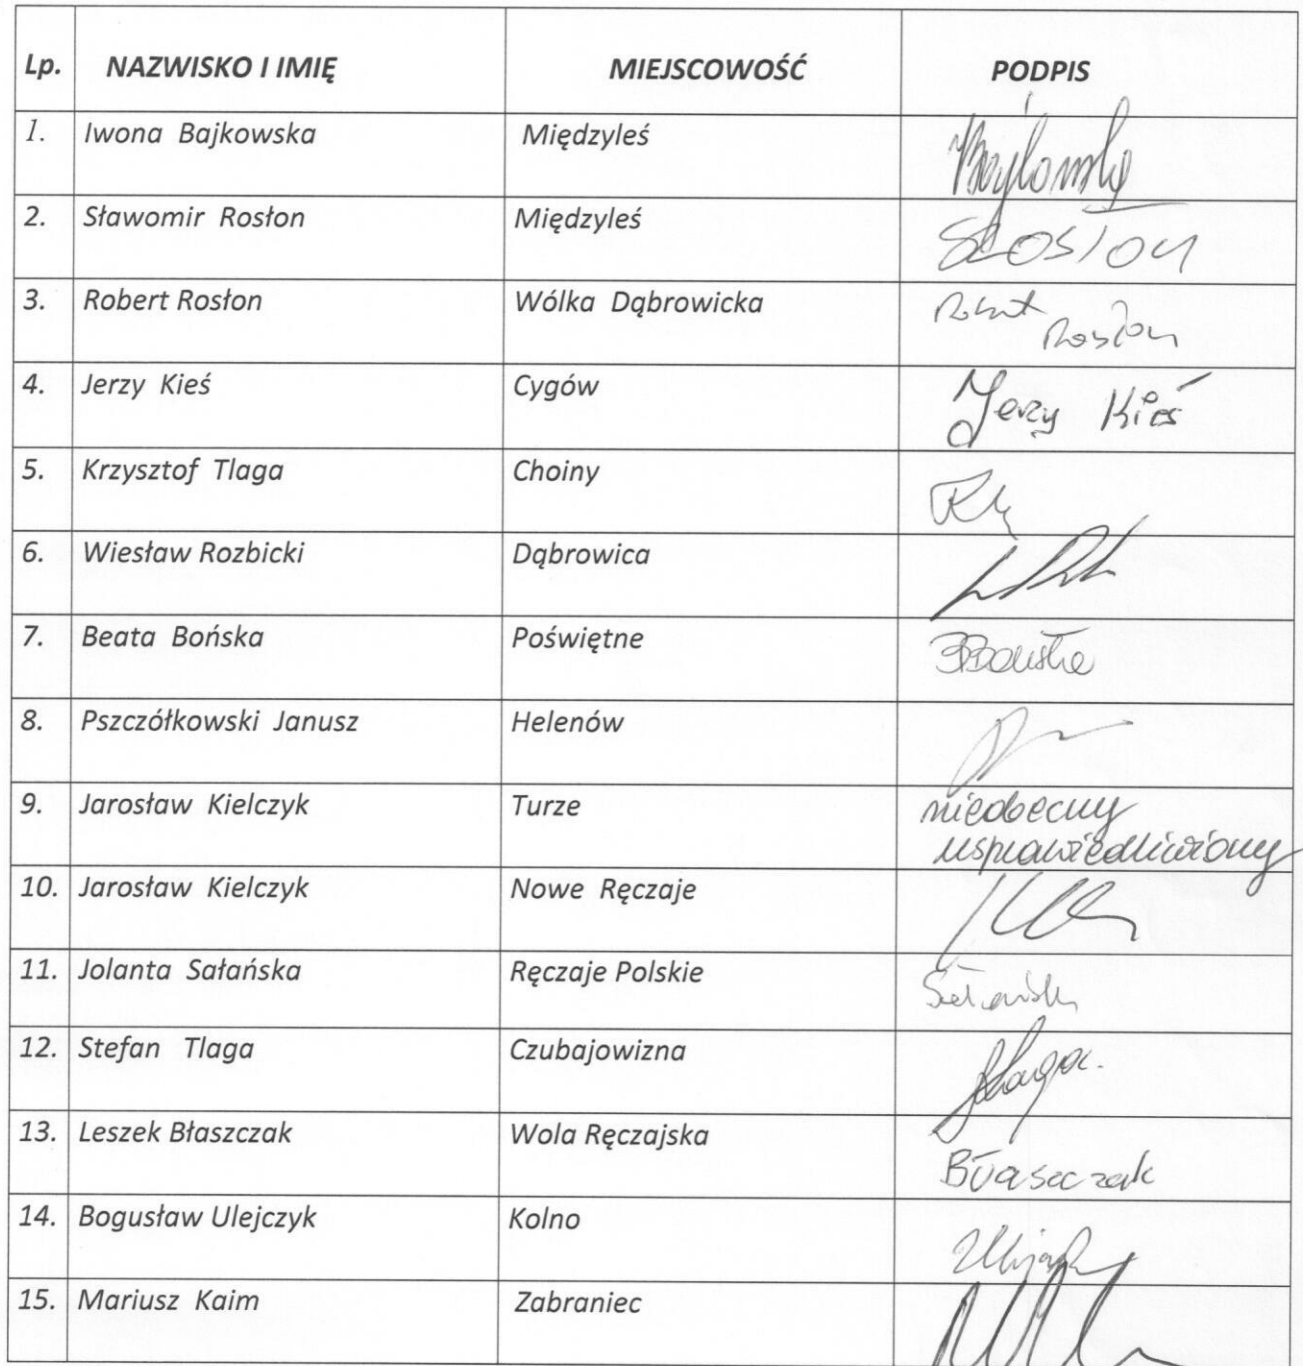 Lp. NAZWISKO I IMIĘ MIEJSCOWOŚĆ PODPIS
1. Iwona Bajkowska Międzyleś
2. Sławomir Rosłon Międzyleś
3. Robert Rosłon Wólka Dąbrowicka Robert
Rosłon
4. Jerzy Kieś Cygów Jerzy Kieś
5. Krzysztof Tlaga Choiny
6. Wiesław Rozbicki Dąbrowica
7. Beata Bońska Poświętne BBońska
8. Pszczółkowski Janusz Helenów
9. Jarosław Kielczyk Turze nieobecny
usprawiedliwiony
10. Jarosław Kielczyk Nowe Ręczaje
11. Jolanta Sałańska Ręczaje Polskie
12. Stefan Tlaga Czubajowizna
13. Leszek Błaszczak Wola Ręczajska Błaszczak
14. Bogusław Ulejczyk Kolno
15. Mariusz Kaim Zabraniec